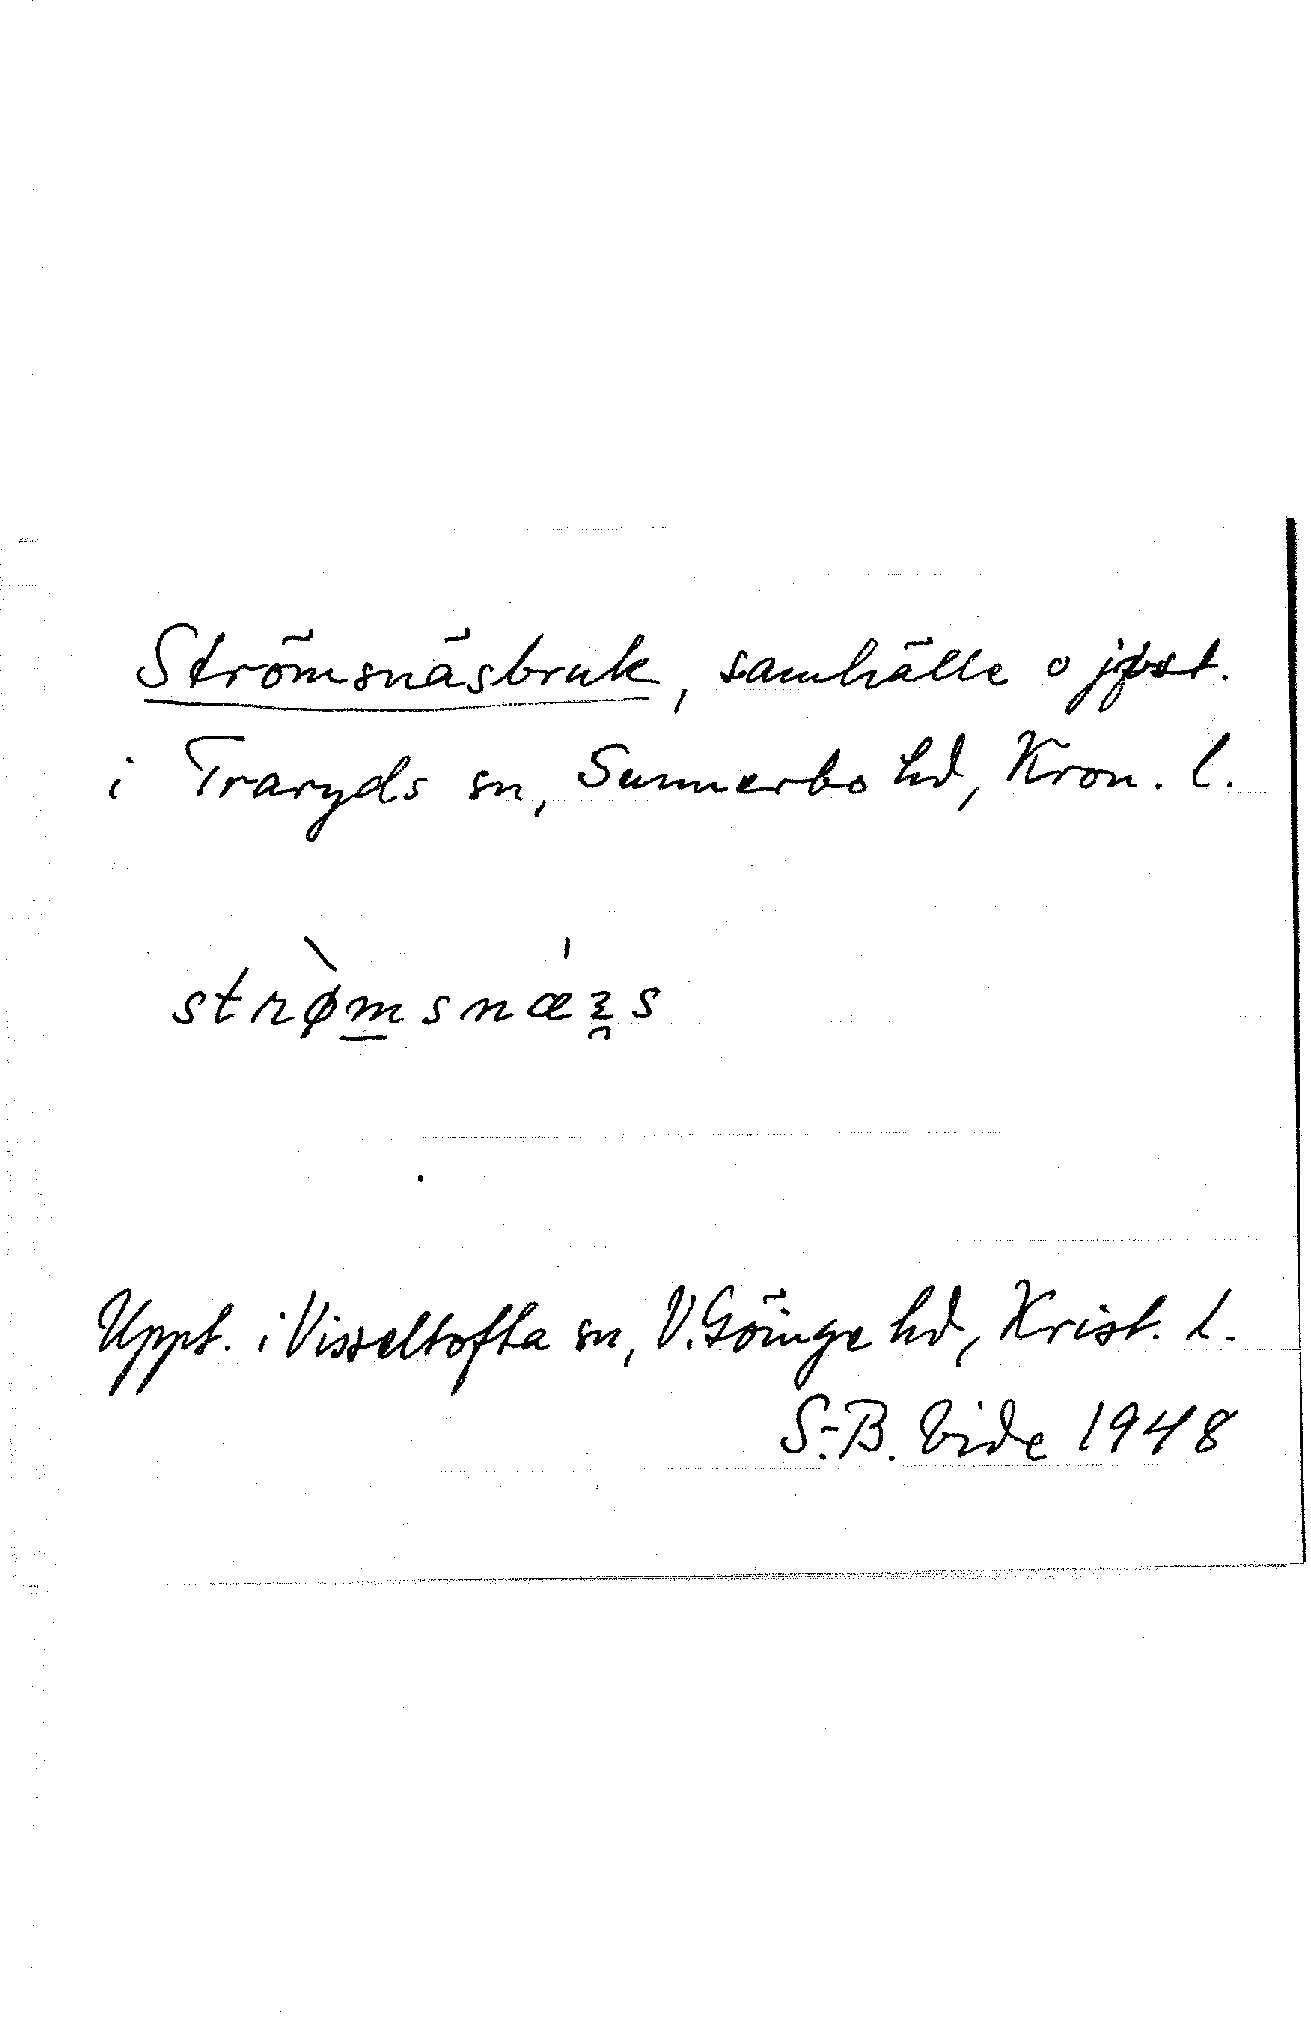 Strömsnäsbruk, samhälle o jpst.
i Traryds sn, Sunnerbo hd, Kron. l.
strø̀m̲snǽꜫ̯s
Uppt. i Visseltofta sn, V. Göinge hd, Krist. l.
S.-B. Vide 1948